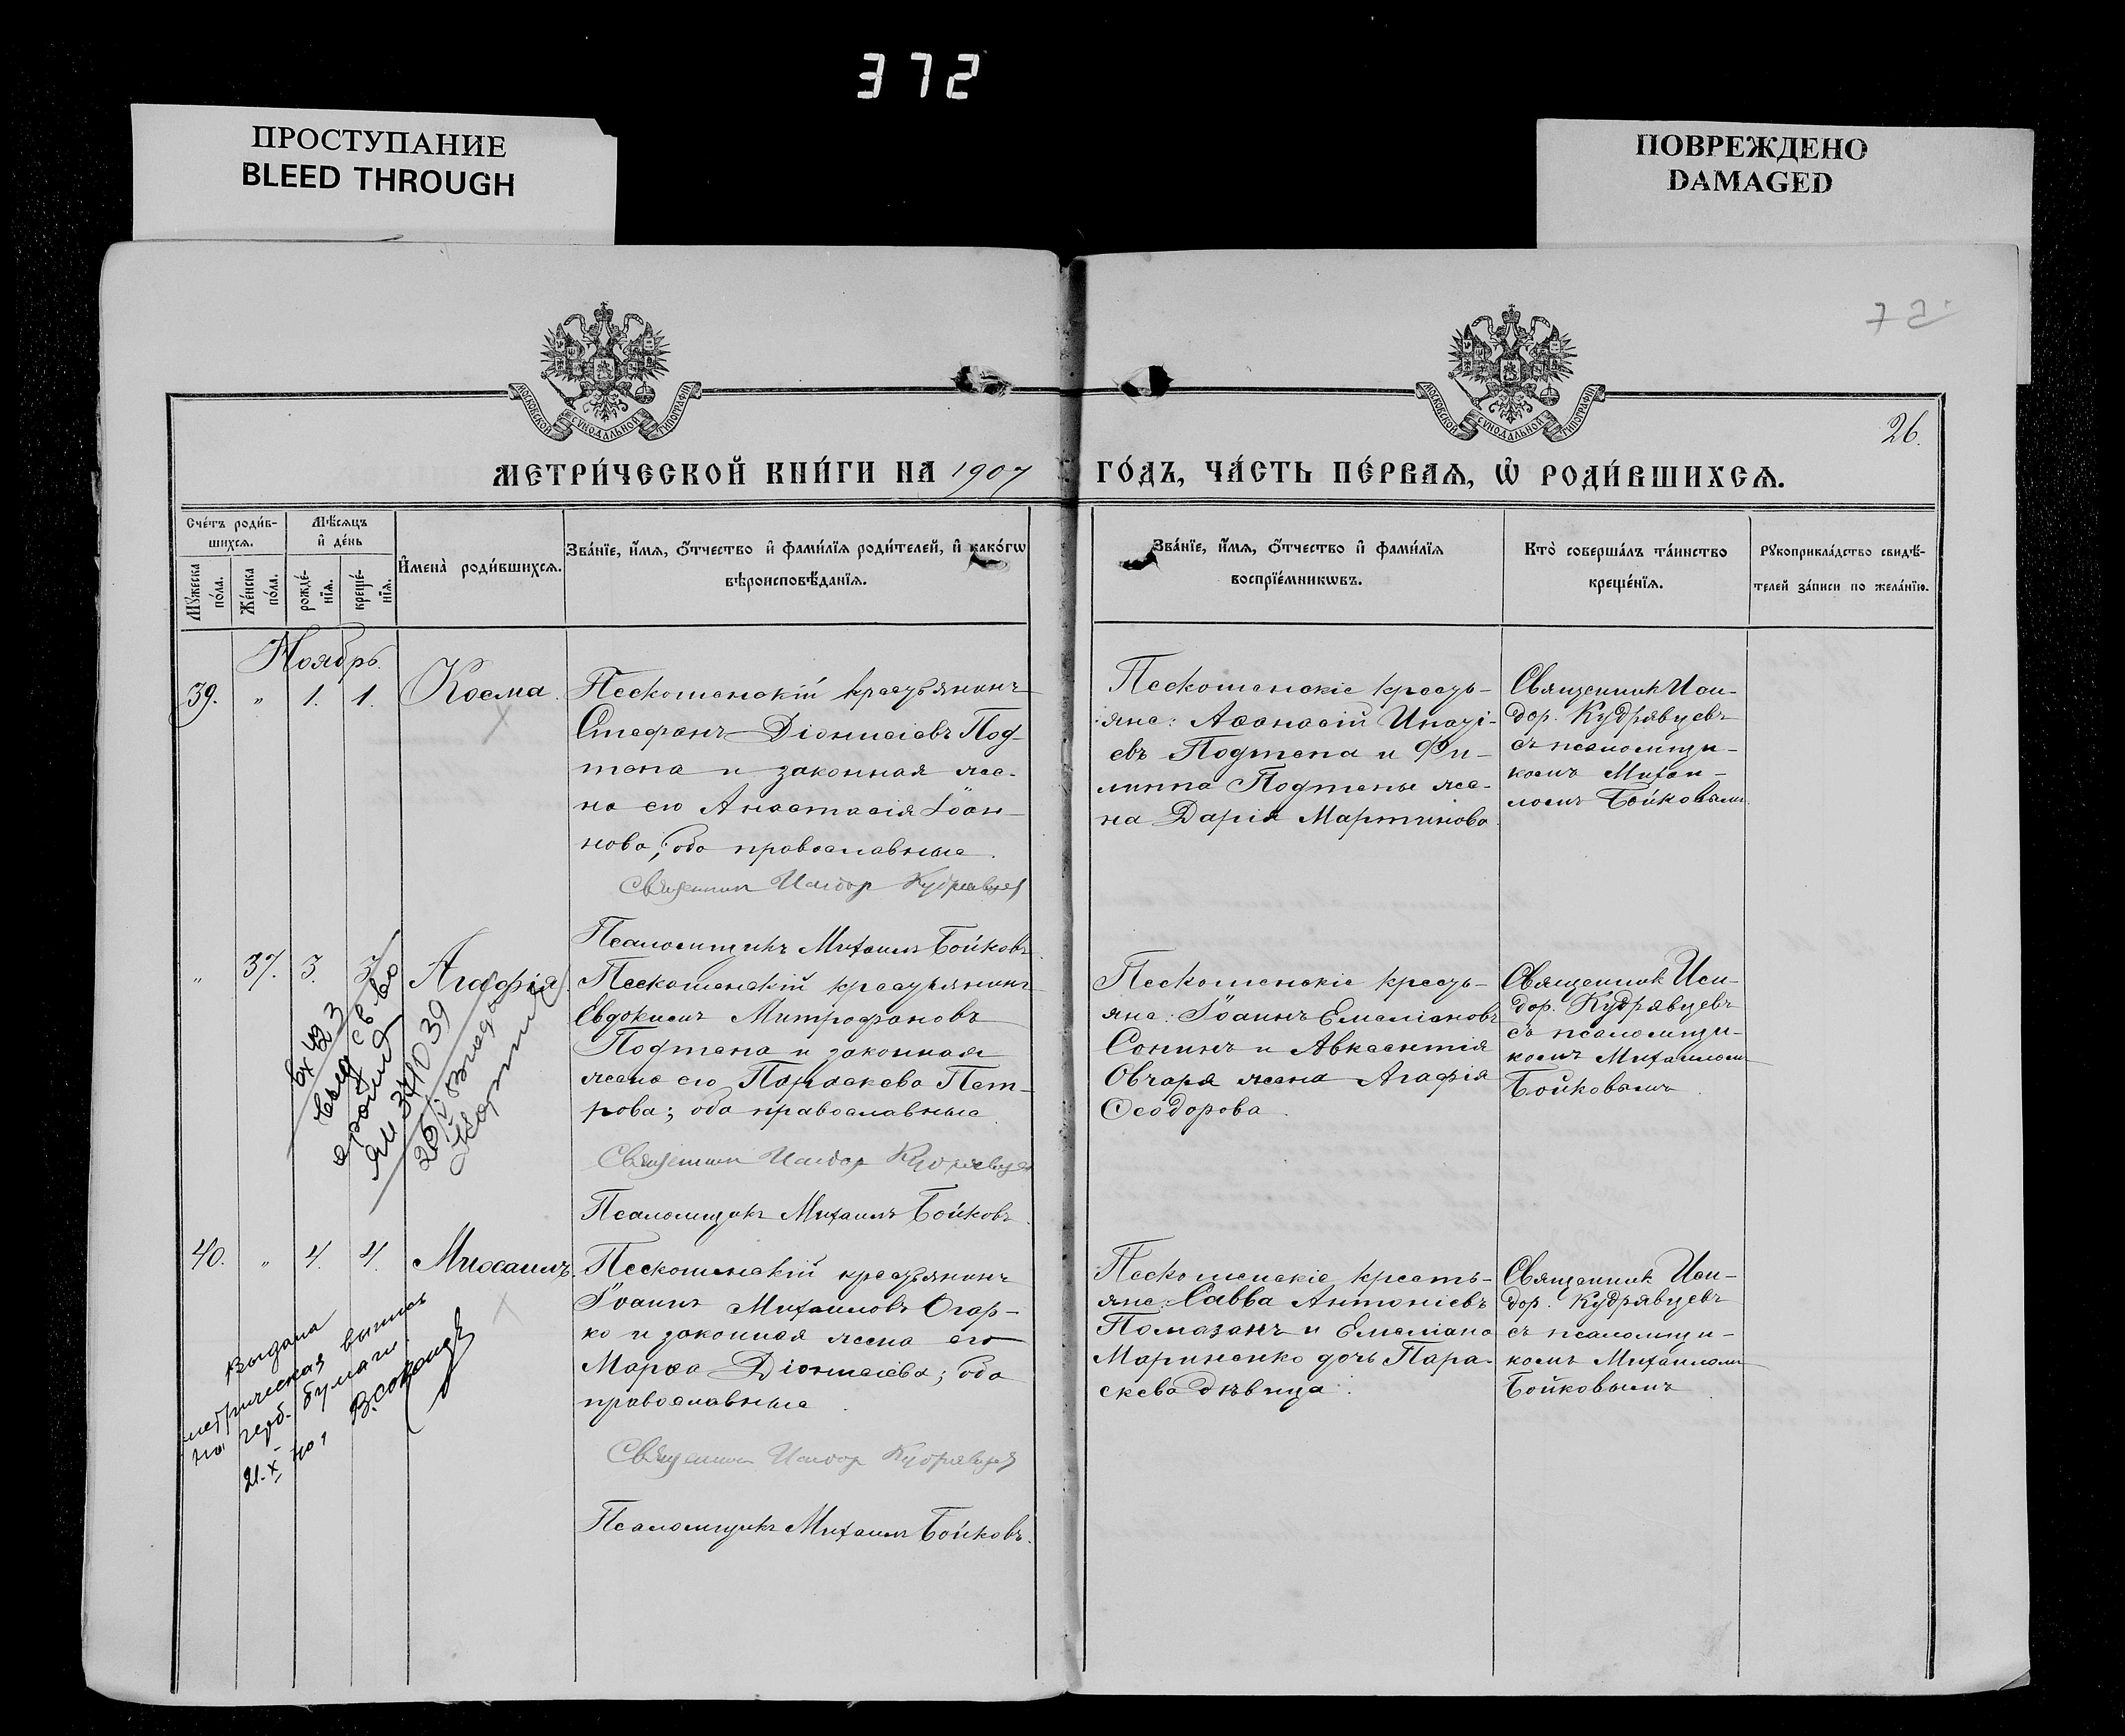 372
ПРОСТУПАНИЕ
BLEED THROUGH
ПОВРЕЖДЕНО
DAMAGED
МОСКОВСКОЙ СУНОДАЛЬНОЙ ТИПОГРАФІИ
МОСКОВСКОЙ СУНОДАЛЬНОЙ ТИПОГРАФІИ
26.
МЕТРИ́ЧЕСКОЙ КНИ́ГИ НА 1907 ГО́ДЪ, ЧА́СТЬ ПЕ́РВАѦ, Ѡ РОДИ́ВШИХСѦ.
Сче́тъ роди́в-
шихсѧ.
Мѣ́сѧцъ
и҆ де́нь
Мꙋ́жеска
по́ла.
Же́нска
по́ла.
рожде́-
нїѧ.
креще́-
нїѧ.
И҆мена̀ роди́вшихсѧ.
Зва́нїе, и҆́мѧ, ѻ҆́тчество и҆ фами́лїѧ роди́телей, и҆ како́гѡ
вѣроисповѣ́данїѧ.
Зва́нїе, и҆́мѧ, ѻ҆́тчество и҆ фами́лїѧ
воспрїе́мникѡвъ.
Кто̀ соверша́лъ та́инство
креще́нїѧ.
Рꙋкоприкла́дство свидѣ́-
телей за́писи по жела́нїю.
Ноябрь.
39. " 1. 1. Косма.
Пескошенскій крестьянинъ
Стефанъ Діонисіевъ Под-
тепа и законная же-
на его Анастасія Іоан-
нова; оба православные.
Священник Исидор Кудрявцев
Псаломщикъ Михаилъ Бойковъ.
Пескошенскіе кресть-
яне: Аѳанасій Игнаті-
евъ Подтепа и Фи-
липпа Подтепы же-
на Дарія Мартинова
Священник Иси-
дор. Кудрявцевъ
съ псаломщи-
комъ Михаи-
ломъ Бойковымъ.
" 37. 3. 3. Агафія.
Пескошенскій крестьянинъ
Евдокимъ Митрофановъ
Подтепа и законная
жена его Параскева Пет-
рова; оба православные
Священник Исидор Кудрявцев
Псаломщикъ Михаилъ Бойковъ.
Пескошенскіе кресть-
яне: Іоаннъ Емеліановъ
Сонинъ и Авксентія
Овчаря жена Агафія
Ѳеодорова.
Священник Иси-
дор. Кудрявцевъ
съ псаломщи-
комъ Михаиломъ
Бойковымъ.
вх 423
выд св во
ЯИ 341039
40. " 4. 4. Мисаилъ.
Пескошенскій крестьянинъ
Іоаннъ Михаиловъ Огар-
ко и законная жена его
Марѳа Діонисіева; оба
православные.
Священник Исидор Кудрявцев
Псаломщикъ Михаилъ Бойковъ.
Пескошенскіе кресть-
яне: Савва Антоніевъ
Помазанъ и Емеліана
Мариненко дочь Пара-
скева дѣвица.
Священник Иси-
дор. Кудрявцевъ
съ псаломщи-
комъ Михаиломъ
Бойковымъ.
выдана
метрическая выпись
на герб. бумаги.
21. X